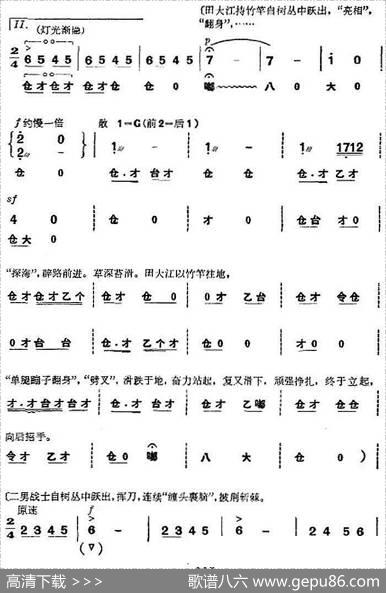 〔田大江持竹竿自树丛中跃出，“亮相”，
11. (灯光渐隐) “翻身”，……
p
2/4 6 5 4 5 | 6 5 4 5 | 6 5 4 5 | 6 5 4 5 | 7 - | 7 - | i 0
仓才仓才 仓才仓才 仓 0 仓 0 嘟 八 0 大 0
f 约慢一倍 散 1=G(前2=后1)
2 0 1 1 1 1 1712
2 -
仓 0 仓.才 台才 仓 仓 仓.才 乙才
sf
4 0 仓 0 才 0 仓台 才0
仓大 0
“探海”，辟路前进。草深苔滑。田大江以竹竿拄地，
仓才 仓才乙个 仓才 仓0 0才 乙台 仓才 令仓
0才台台 仓.才 乙个才 仓 0 仓 0
“单腿蹦子翻身”，“劈叉”，滑跌于地，奋力站起，复又滑下，顽强挣扎，终于立起，
才.才台才台才 仓.才 台才 仓才 乙嘟 仓.才 台才
向后招手。
令才 乙才 仓0 嘟 八 大 仓 0 )
〔二男战士自树丛中跃出，挥刀，连续“缠头裹脑”，披荆斩棘。
原速 f
2/4 2 3 4 5 | 2 3 4 5 | 6 - | 2 3 4 5 | 6 - | 2 4 5 6
(▽)
高清下载 >>> 歌谱八六 www.gepu86.com